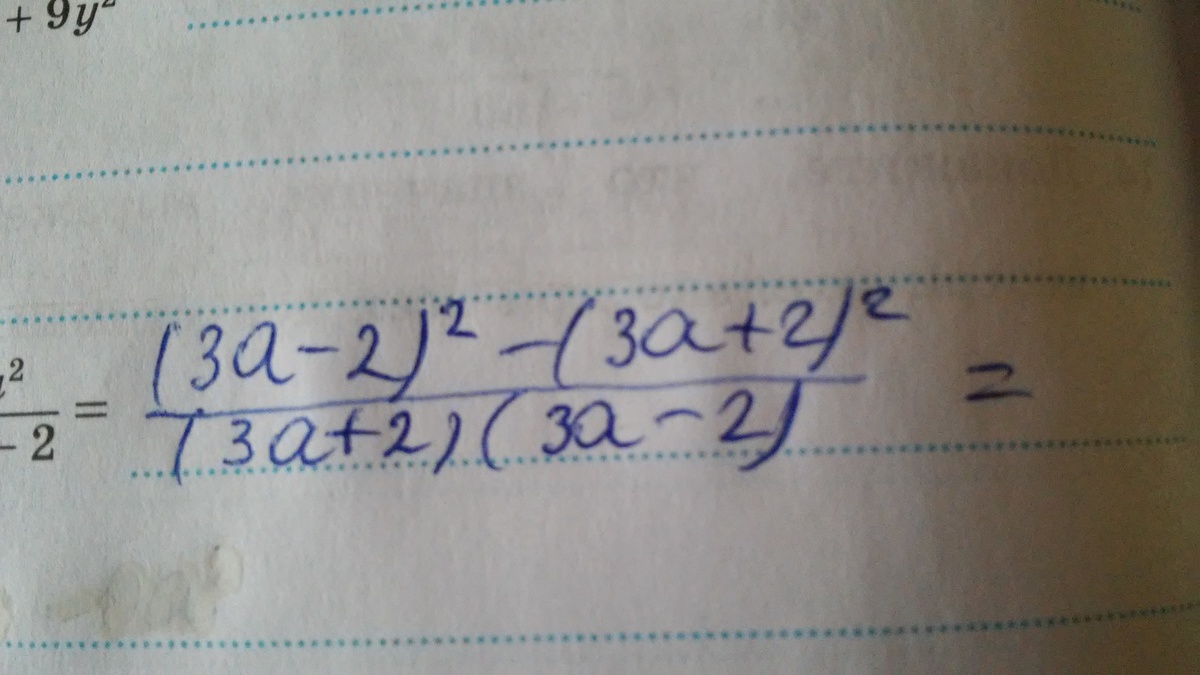 + 9y²
² / - 2 = ((3a-2)² - (3a+2)²) / ((3a+2)(3a-2)) =